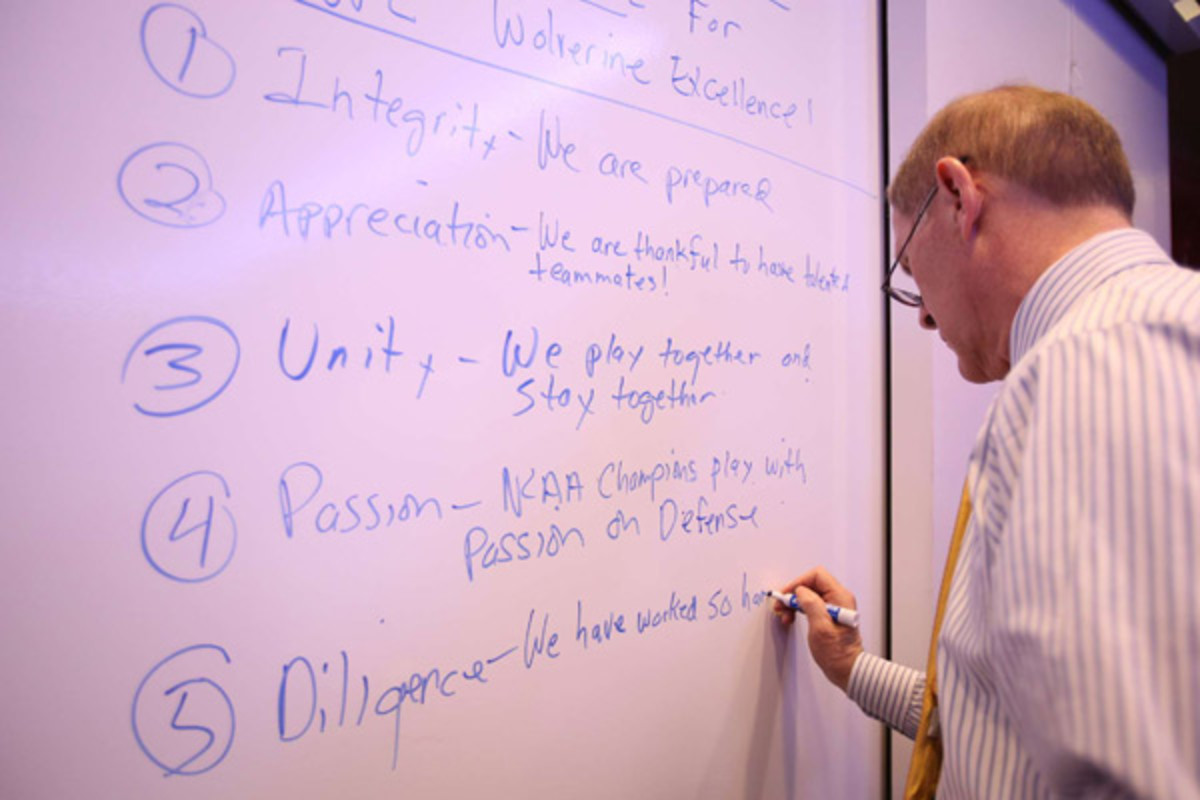 For
Wolverine Excellence!
1 Integrity - We are prepared
2 Appreciation - We are thankful to have talented
teammates!
3 Unity - We play together and
stay together
4 Passion - NCAA Champions play with
Passion on Defense
5 Diligence - We have worked so har